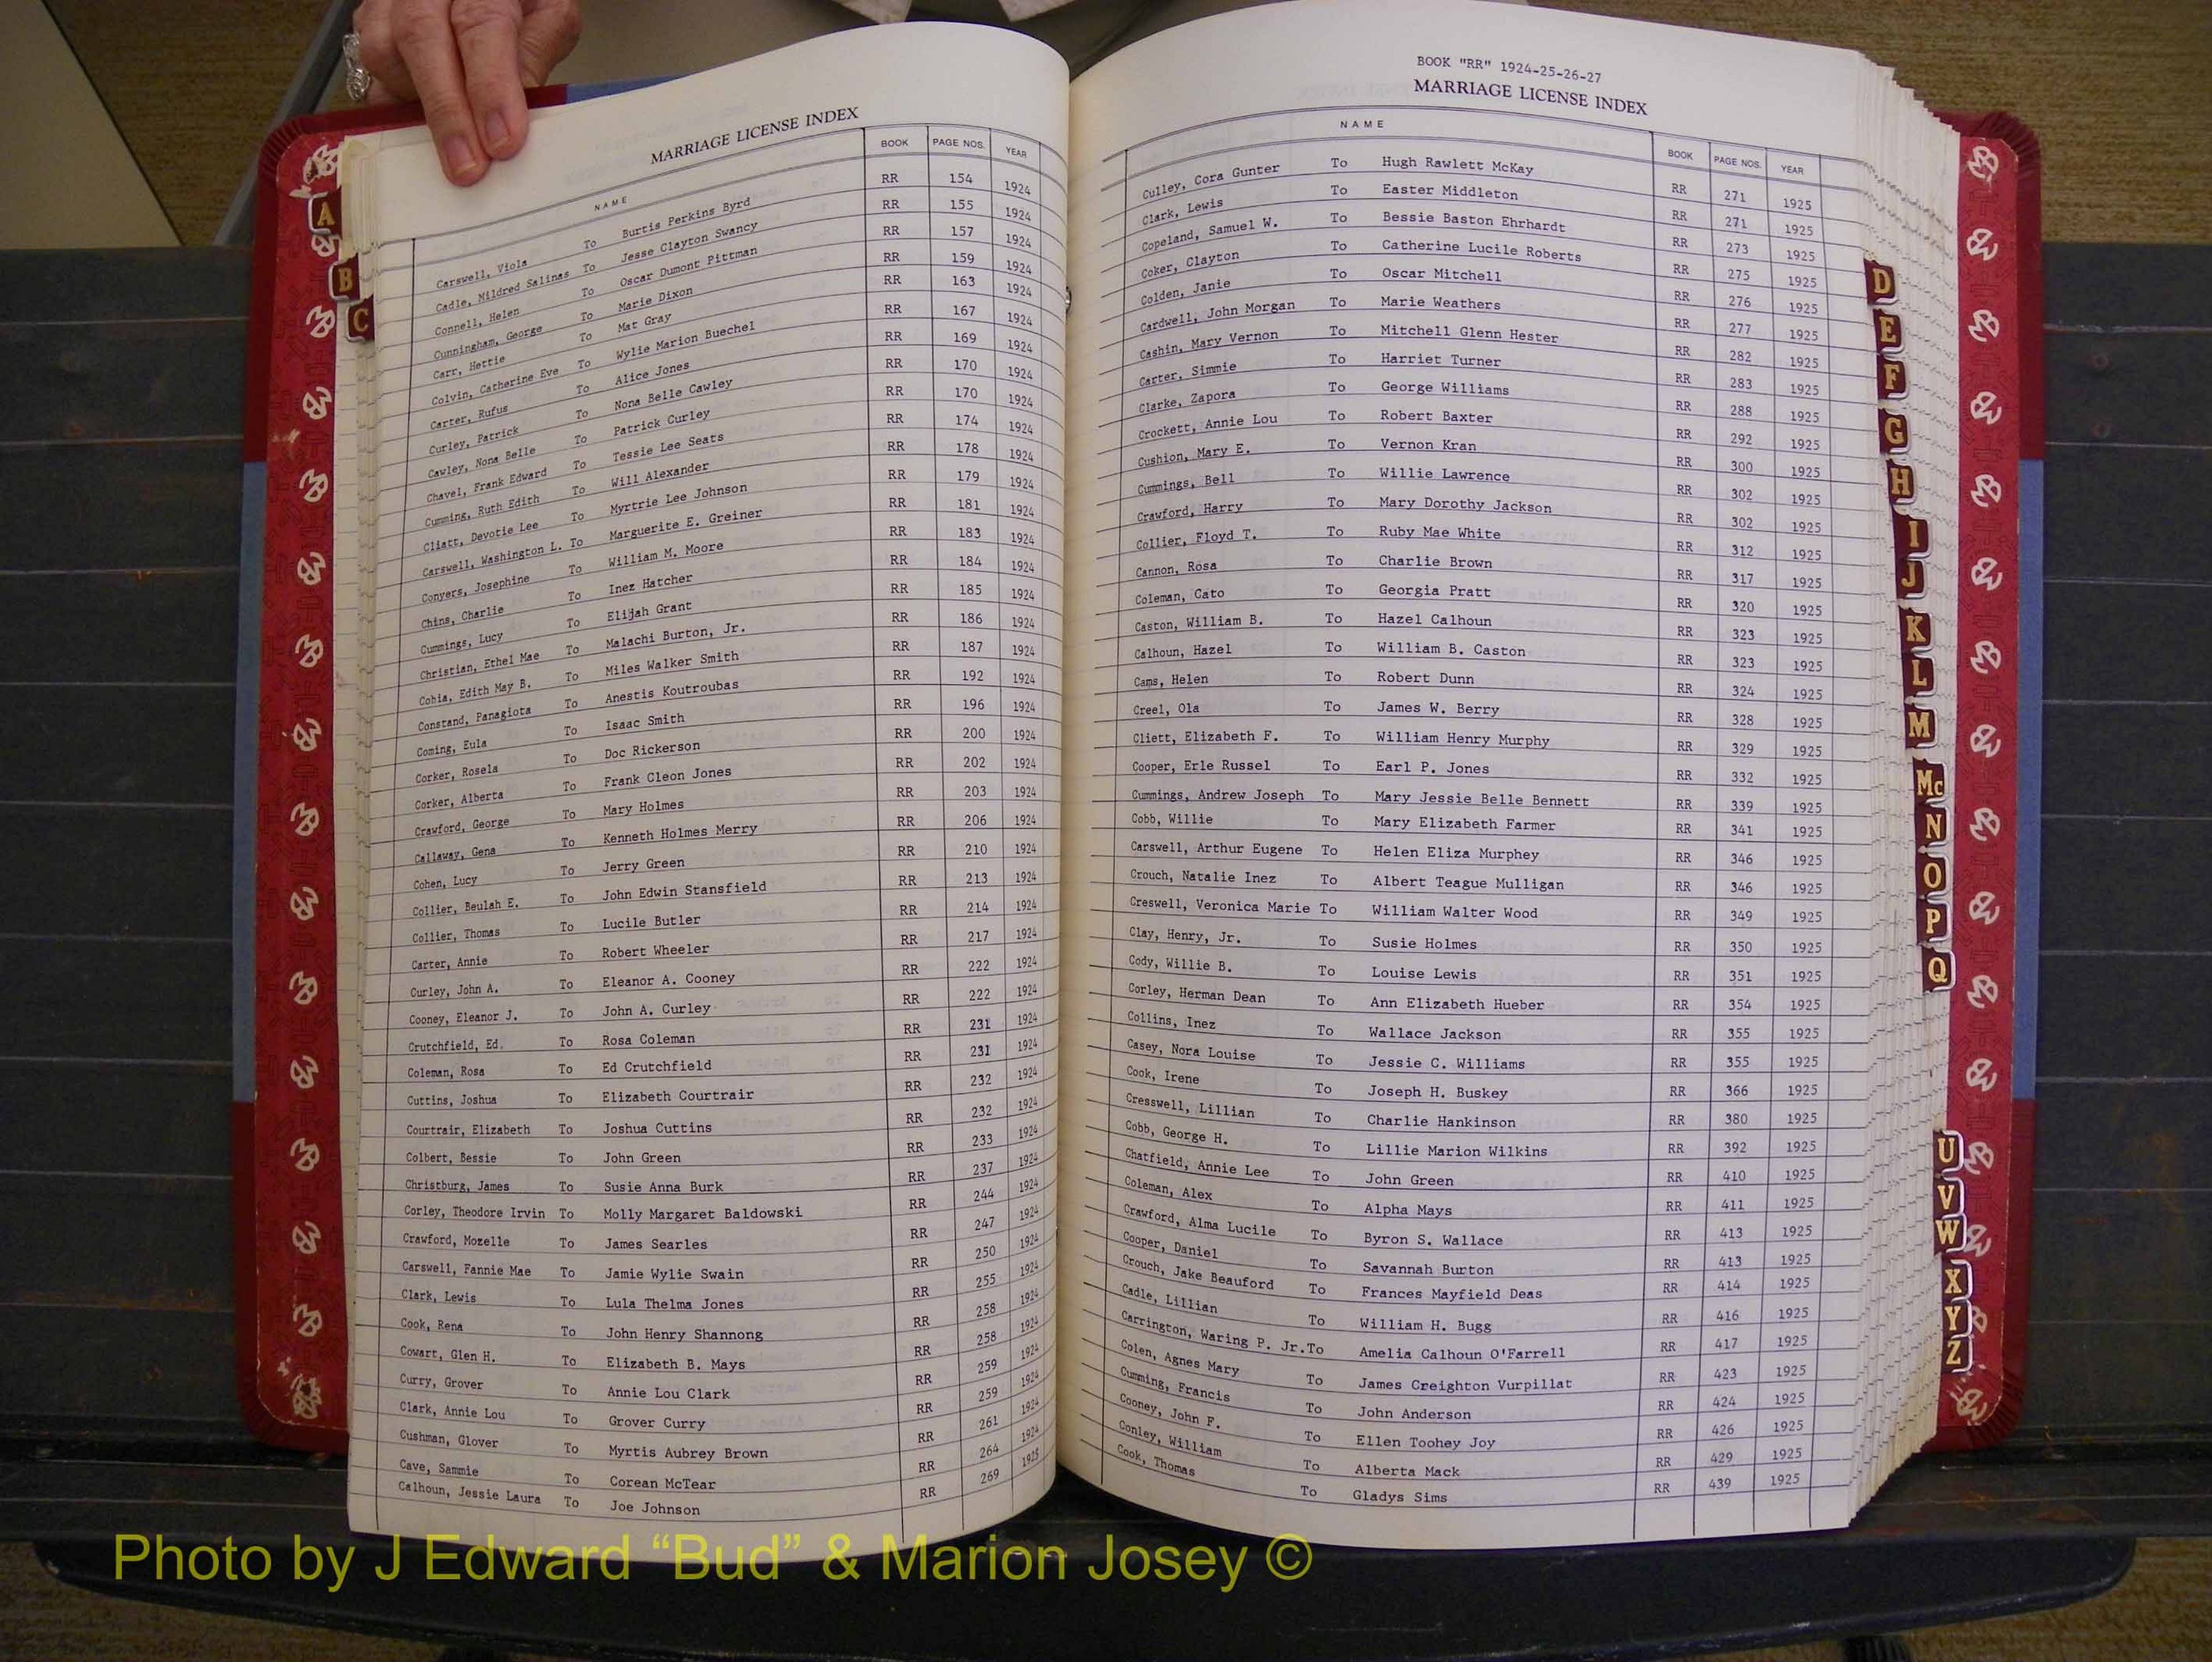 MARRIAGE LICENSE INDEX
NAME BOOK PAGE NOS. YEAR
Carswell, Viola To Burtis Perkins Byrd RR 154 1924
Cadle, Mildred Salinas To Jesse Clayton Swancy RR 155 1924
Connell, Helen To Oscar Dumont Pittman RR 157 1924
Cunningham, George To Marie Dixon RR 159 1924
Carr, Hettie To Mat Gray RR 163 1924
Colvin, Catherine Eve To Wylie Marion Buechel RR 167 1924
Carter, Rufus To Alice Jones RR 169 1924
Curley, Patrick To Nona Belle Cawley RR 170 1924
Cawley, Nona Belle To Patrick Curley RR 170 1924
Chavel, Frank Edward To Tessie Lee Seats RR 174 1924
Cumming, Ruth Edith To Will Alexander RR 178 1924
Cliatt, Devotie Lee To Myrtrie Lee Johnson RR 179 1924
Carswell, Washington L. To Marguerite E. Greiner RR 181 1924
Conyers, Josephine To William M. Moore RR 183 1924
Chins, Charlie To Inez Hatcher RR 184 1924
Cummings, Lucy To Elijah Grant RR 185 1924
Christian, Ethel Mae To Malachi Burton, Jr. RR 186 1924
Cobia, Edith May B. To Miles Walker Smith RR 187 1924
Constand, Panagiota To Anestis Koutroubas RR 192 1924
Coming, Eula To Isaac Smith RR 196 1924
Corker, Rosela To Doc Rickerson RR 200 1924
Corker, Alberta To Frank Cleon Jones RR 202 1924
Crawford, George To Mary Holmes RR 203 1924
Callaway, Gena To Kenneth Holmes Merry RR 206 1924
Cohen, Lucy To Jerry Green RR 210 1924
Collier, Beulah E. To John Edwin Stansfield RR 213 1924
Collier, Thomas To Lucile Butler RR 214 1924
Carter, Annie To Robert Wheeler RR 217 1924
Curley, John A. To Eleanor A. Cooney RR 222 1924
Cooney, Eleanor J. To John A. Curley RR 222 1924
Crutchfield, Ed. To Rosa Coleman RR 231 1924
Coleman, Rosa To Ed Crutchfield RR 231 1924
Cuttins, Joshua To Elizabeth Courtrair RR 232 1924
Courtrair, Elizabeth To Joshua Cuttins RR 232 1924
Colbert, Bessie To John Green RR 233 1924
Christburg, James To Susie Anna Burk RR 237 1924
Corley, Theodore Irvin To Molly Margaret Baldowski RR 244 1924
Crawford, Mozelle To James Searles RR 247 1924
Carswell, Fannie Mae To Jamie Wylie Swain RR 250 1924
Clark, Lewis To Lula Thelma Jones RR 255 1924
Cook, Rena To John Henry Shannong RR 258 1924
Cowart, Glen H. To Elizabeth B. Mays RR 258 1924
Curry, Grover To Annie Lou Clark RR 259 1924
Clark, Annie Lou To Grover Curry RR 259 1924
Cushman, Glover To Myrtis Aubrey Brown RR 261 1924
Cave, Sammie To Corean McTear RR 264 1924
Calhoun, Jessie Laura To Joe Johnson RR 269 1925
BOOK "RR" 1924-25-26-27
MARRIAGE LICENSE INDEX
NAME BOOK PAGE NOS. YEAR
Culley, Cora Gunter To Hugh Rawlett McKay RR 271 1925
Clark, Lewis To Easter Middleton RR 271 1925
Copeland, Samuel W. To Bessie Baston Ehrhardt RR 273 1925
Coker, Clayton To Catherine Lucile Roberts RR 275 1925
Colden, Janie To Oscar Mitchell RR 276 1925
Cardwell, John Morgan To Marie Weathers RR 277 1925
Cashin, Mary Vernon To Mitchell Glenn Hester RR 282 1925
Carter, Simmie To Harriet Turner RR 283 1925
Clarke, Zapora To George Williams RR 288 1925
Crockett, Annie Lou To Robert Baxter RR 292 1925
Cushion, Mary E. To Vernon Kran RR 300 1925
Cummings, Bell To Willie Lawrence RR 302 1925
Crawford, Harry To Mary Dorothy Jackson RR 302 1925
Collier, Floyd T. To Ruby Mae White RR 312 1925
Cannon, Rosa To Charlie Brown RR 317 1925
Coleman, Cato To Georgia Pratt RR 320 1925
Caston, William B. To Hazel Calhoun RR 323 1925
Calhoun, Hazel To William B. Caston RR 323 1925
Cams, Helen To Robert Dunn RR 324 1925
Creel, Ola To James W. Berry RR 328 1925
Cliett, Elizabeth F. To William Henry Murphy RR 329 1925
Cooper, Erle Russel To Earl P. Jones RR 332 1925
Cummings, Andrew Joseph To Mary Jessie Belle Bennett RR 339 1925
Cobb, Willie To Mary Elizabeth Farmer RR 341 1925
Carswell, Arthur Eugene To Helen Eliza Murphey RR 346 1925
Crouch, Natalie Inez To Albert Teague Mulligan RR 346 1925
Creswell, Veronica Marie To William Walter Wood RR 349 1925
Clay, Henry, Jr. To Susie Holmes RR 350 1925
Cody, Willie B. To Louise Lewis RR 351 1925
Corley, Herman Dean To Ann Elizabeth Hueber RR 354 1925
Collins, Inez To Wallace Jackson RR 355 1925
Casey, Nora Louise To Jessie C. Williams RR 355 1925
Cook, Irene To Joseph H. Buskey RR 366 1925
Cresswell, Lillian To Charlie Hankinson RR 380 1925
Cobb, George H. To Lillie Marion Wilkins RR 392 1925
Chatfield, Annie Lee To John Green RR 410 1925
Coleman, Alex To Alpha Mays RR 411 1925
Crawford, Alma Lucile To Byron S. Wallace RR 413 1925
Cooper, Daniel To Savannah Burton RR 413 1925
Crouch, Jake Beauford To Frances Mayfield Deas RR 414 1925
Cadle, Lillian To William H. Bugg RR 416 1925
Carrington, Waring P. Jr.To Amelia Calhoun O'Farrell RR 417 1925
Colen, Agnes Mary To James Creighton Vurpillat RR 423 1925
Cumming, Francis To John Anderson RR 424 1925
Cooney, John F. To Ellen Toohey Joy RR 426 1925
Conley, William To Alberta Mack RR 429 1925
Cook, Thomas To Gladys Sims RR 439 1925
A
B
C
D
E
F
G
H
I
J
K
L
M
Mc
N
O
P
Q
U
V
W
X
Y
Z
Photo by J Edward “Bud” & Marion Josey ©